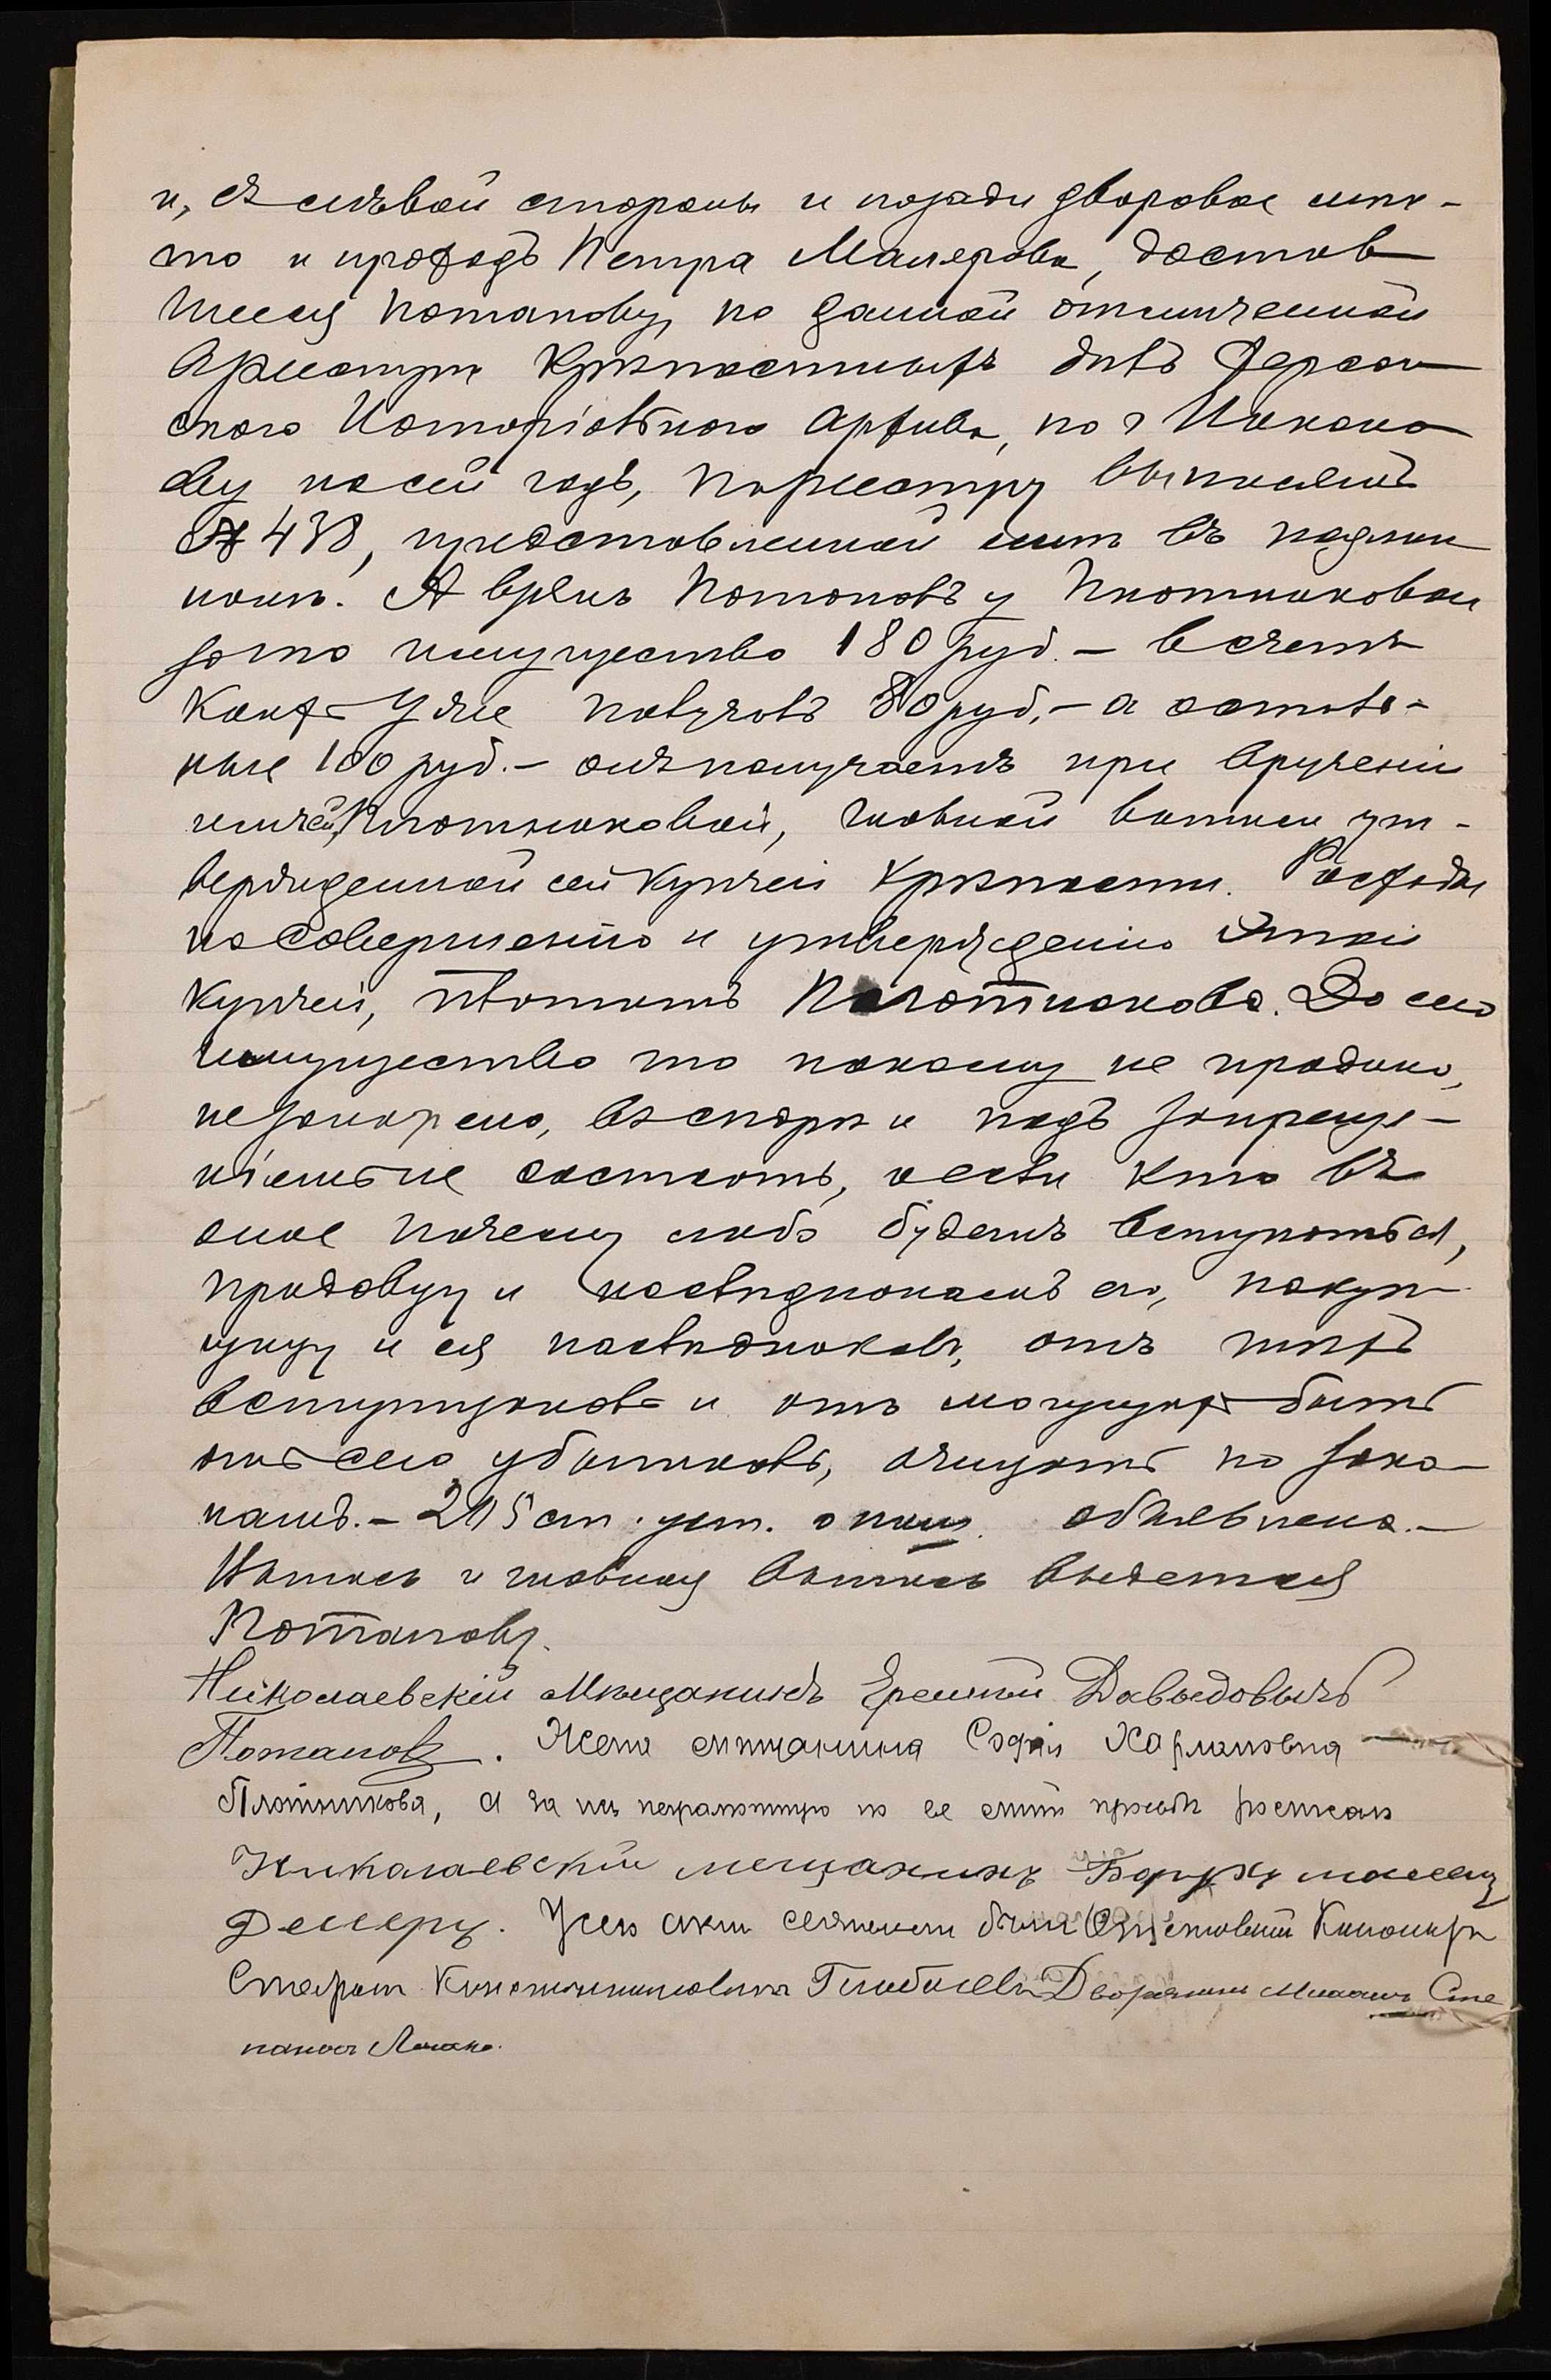 и, съ лѣвой стороны и позади дворовое мѣс-
то и проходъ Петра Малярова, достав
шееся Потапову, по данной отмѣченной
въ реестрѣ крѣпостныхъ дѣлъ Херсон
скаго Нотаріальнаго Архива, по г. Никола
еву на сей годъ, по реестру выписямъ
№ 438, представленной мнѣ въ подлин
номъ. А взялъ Потаповъ у Плотниковой
за то имущество 180 руб. – въ счетъ
коихъ уже получалъ 80 руб. – а осталь-
ные 100 руб. – онъ получаетъ при врученіи
имъ ей, Плотниковой, главной выписи ут-
вержденной сей купчей крѣпости. Расходы
по совершенію и утвержденію этой
купчей, платитъ Плотникова. До сего
имущество то никому не продано,
не заложено, въ спорѣ и подъ запреще-
ніемъ не состоитъ, а если кто въ
оное почему либо будетъ вступаться,
продавцу и наслѣдникамъ его, покуп
щицу и ея наслѣдниковъ, отъ тѣхъ
вступщиковъ и отъ могущихъ быть
отъ сего убытковъ, очищать по зако-
намъ. – 215 ст. уст. о пошл. объявлена. –
Выпись и главная выпись выдается
Потапову.
Николаевскій Мѣщанинъ Еремѣй Давыдовычъ
Потаповъ. Жена мѣщанина Софія Харлановна
Плотникова, а за нея неграмотную по ее личной просьбѣ росписался
Николаевскій мещанинъ Борухъ
У сего акта свидѣтелями были
Степанъ Константиновичъ Дворянинъ Сте
пановъ